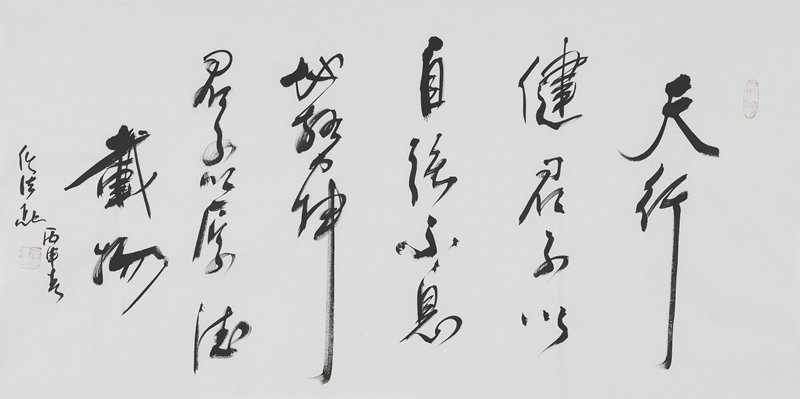 天行
健君子以
自强不息
地势坤
君子以厚德
载物
丙申春